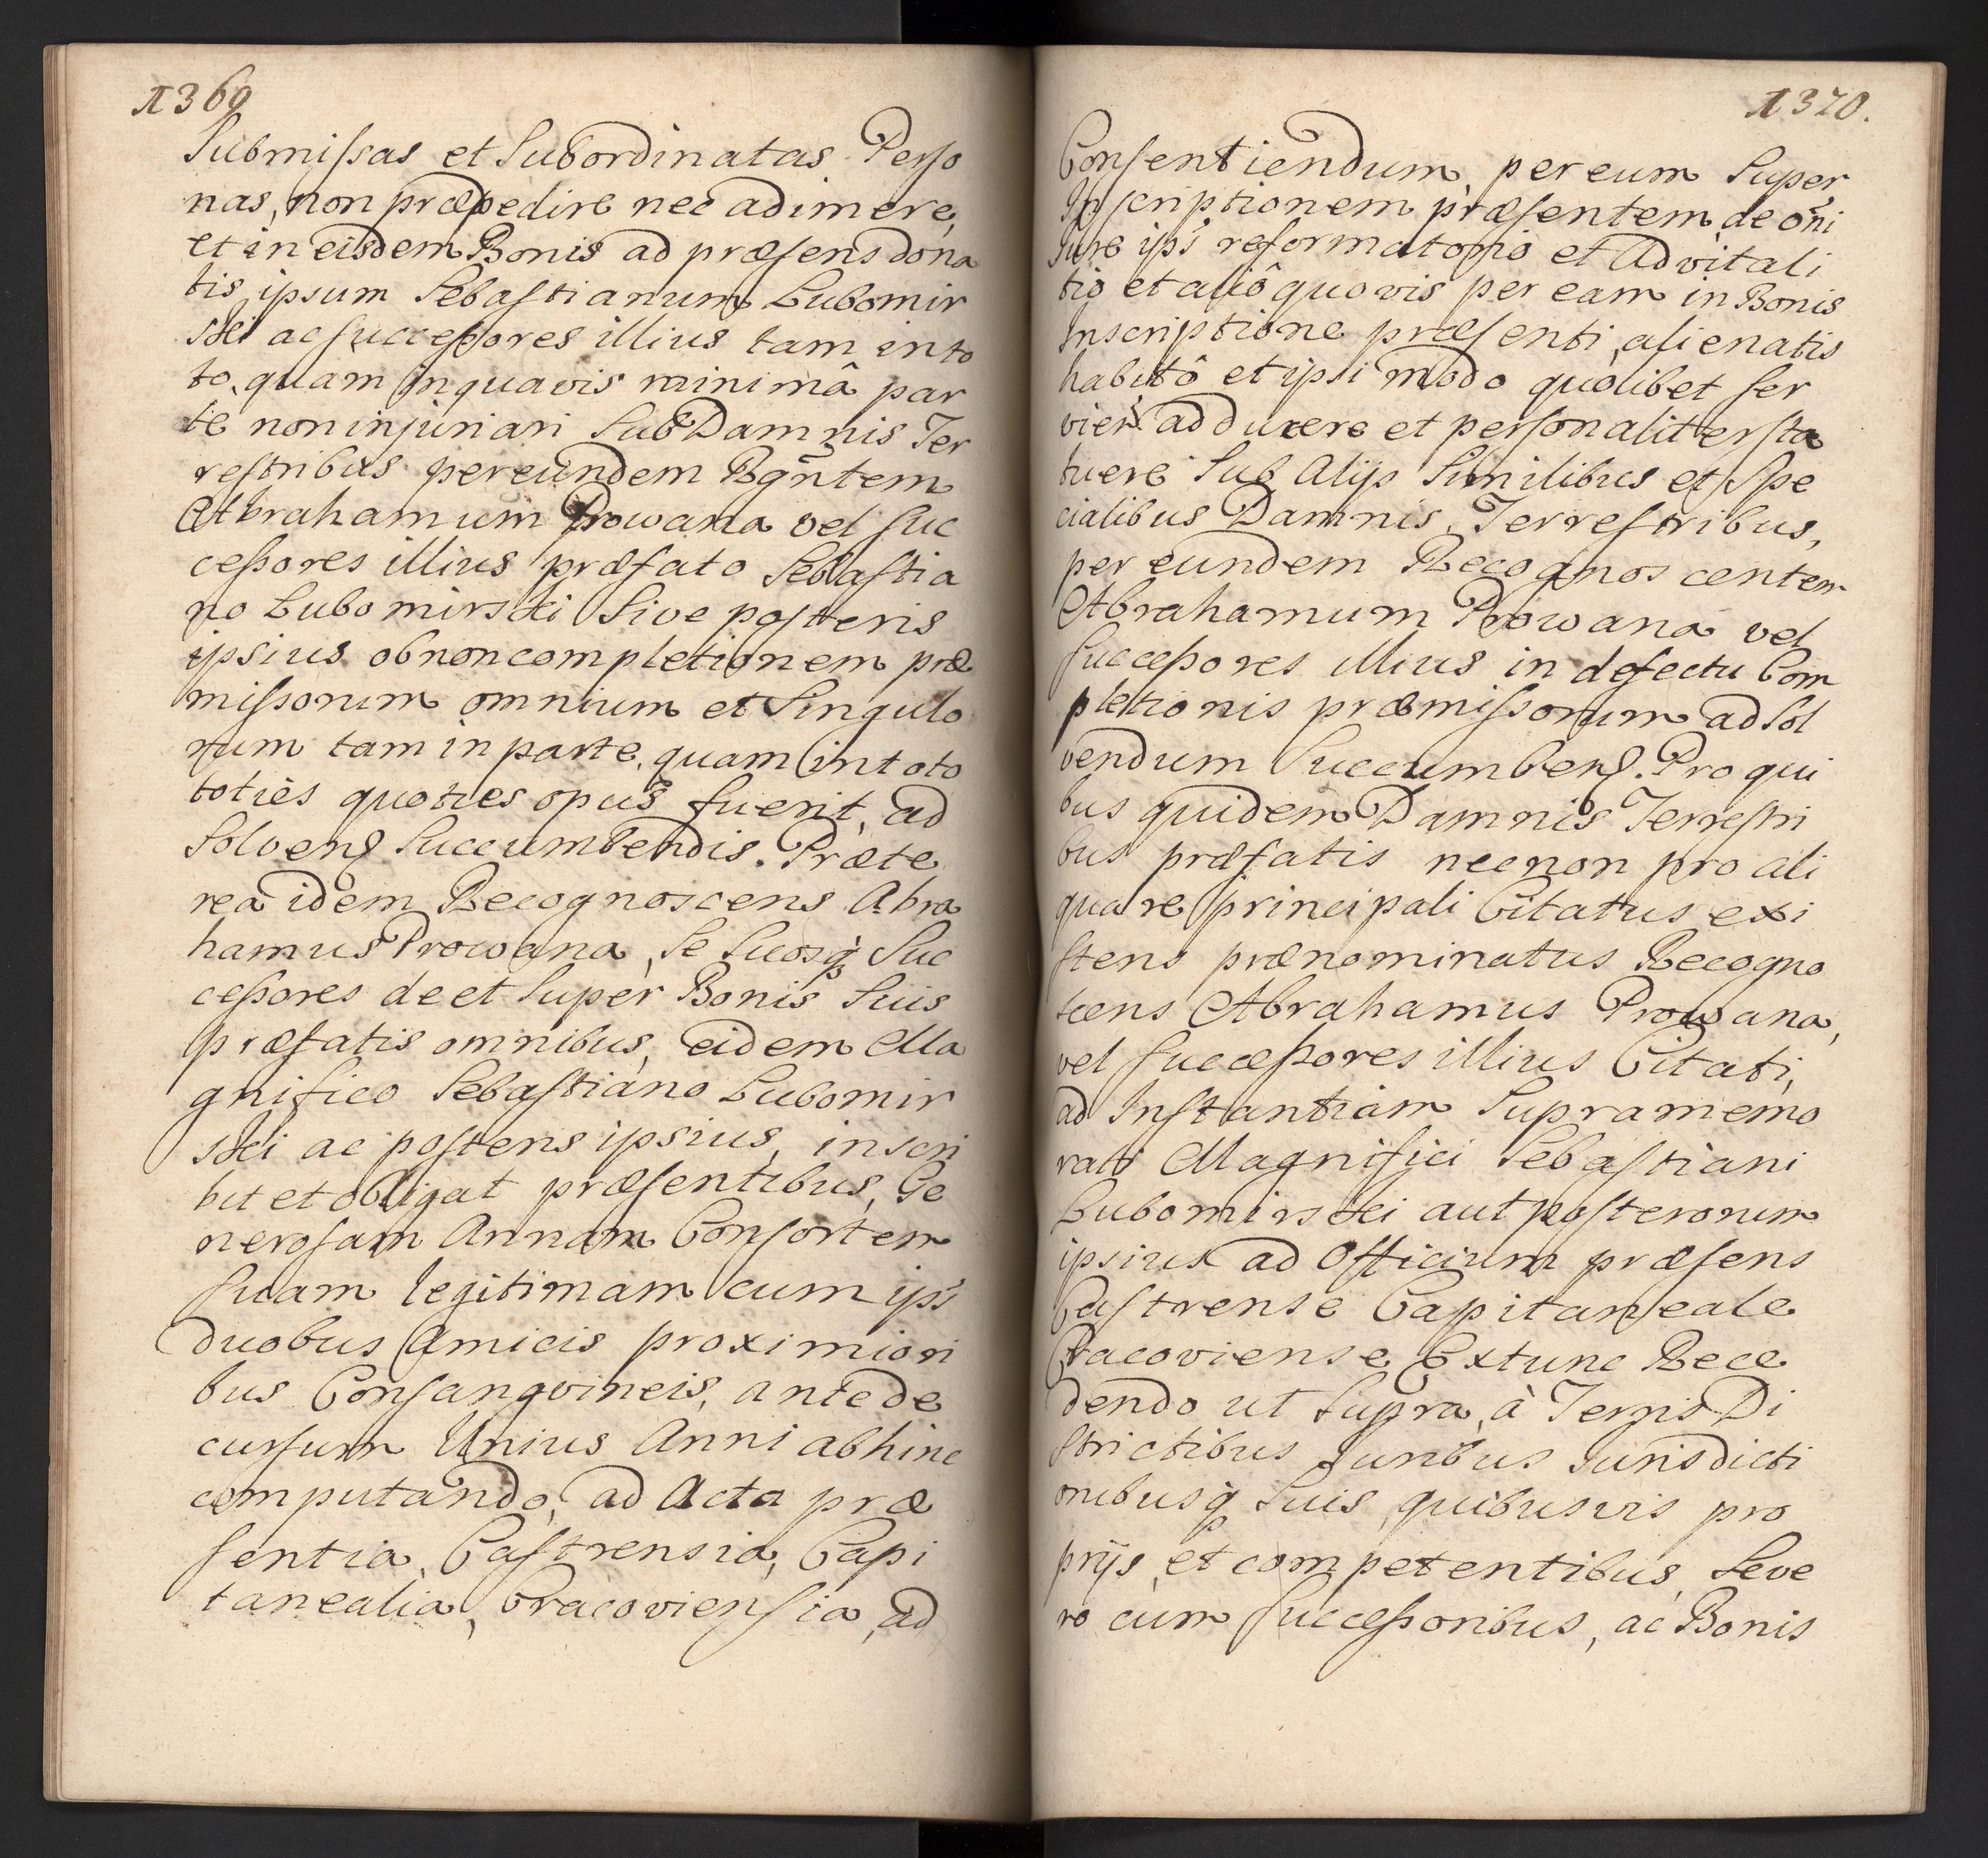 1369
Submissas et Subordinatas Perso
nas, non præpedire nec adimere,
et in eisdem Bonis ad præsens dona
tis, ipsum Sebastianum Lubomir
ski ac successores illius tam in to
to, quam in quavis minimâ par
te non injuriari Sub Damnis Ter
restribus per eundem Rgñtem
Abrahamum Prowana vel suc
cessores illius præfato Sebastia
no Lubomirski Sive posteris
ipsius ob non completionem præ
missorum omnium et Singulo
rum tam in parte, quam in toto
toties quoties opus fuerit, ad
Solvend Succumbendis. Præte
rea idem Recognoscens Abra
hamus Prowana, Se Suosq Suc
cessores de et Super Bonis Suis
præfatis omnibus, eidem Ma
gnifico Sebastiano Lubomir
ski ac posteris ipsius, inscri
bit et obligat præsentibus, Ge
nerosam Annam Consortem
Suam legitimam cum ips
duobus Amicis proximiori
bus Consangvineis, ante de
cursum Unius Anni abhinc
computando, ad Acta præ
sentia, Castrensia, Capi
tanealia, Cracoviensia, ad
1370.
Consentiendum, per eum Super
Inscriptionem præsentem, de oñi
Jure ips reformatorio et Advitali
tio et aliô quovis per eam in Bonis
Inscriptione præsenti, alienatis
habitô et ipsi modo quolibet ser
vien adducere et personaliter sta
tuere Sub Alijs Similibus et Spe
cialibus Damnis, Terrestribus,
per eundem Recognoscentem
Abrahamum Prowana vel
Successores illius in defectu Com
pletionis præmissorum ad Sol
vendum Succumbend. Pro qui
bus quidem Damnis Terrestri
bus præfatis necnon pro ali
qua re principali Citatus exi
stens prænominatus Recogno
scens Abrahamus Prowana,
vel Successores illius Citati,
ad Instantiam Supramemo
rati Magnifici Sebastiani
Lubomirski aut posterorum
ipsius ad Officium præsens
Castrense Capitaneale
Cracoviense Extunc Rece
dendo ut Supra, à Terris Di
strictibus Juribus Jurisdicti
onibusq Suis quibusvis pro
prijs, et competentibus, Seve
ro cum Successoribus, ac Bonis